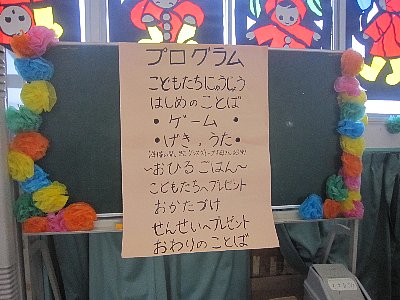 プログラム
こどもたちにゅうじょう
はじめのことば
・ゲーム・
・げき、うた・
〜おひるごはん〜
こどもたちへプレゼント
おかたづけ
せんせいへプレゼント
おわりのことば